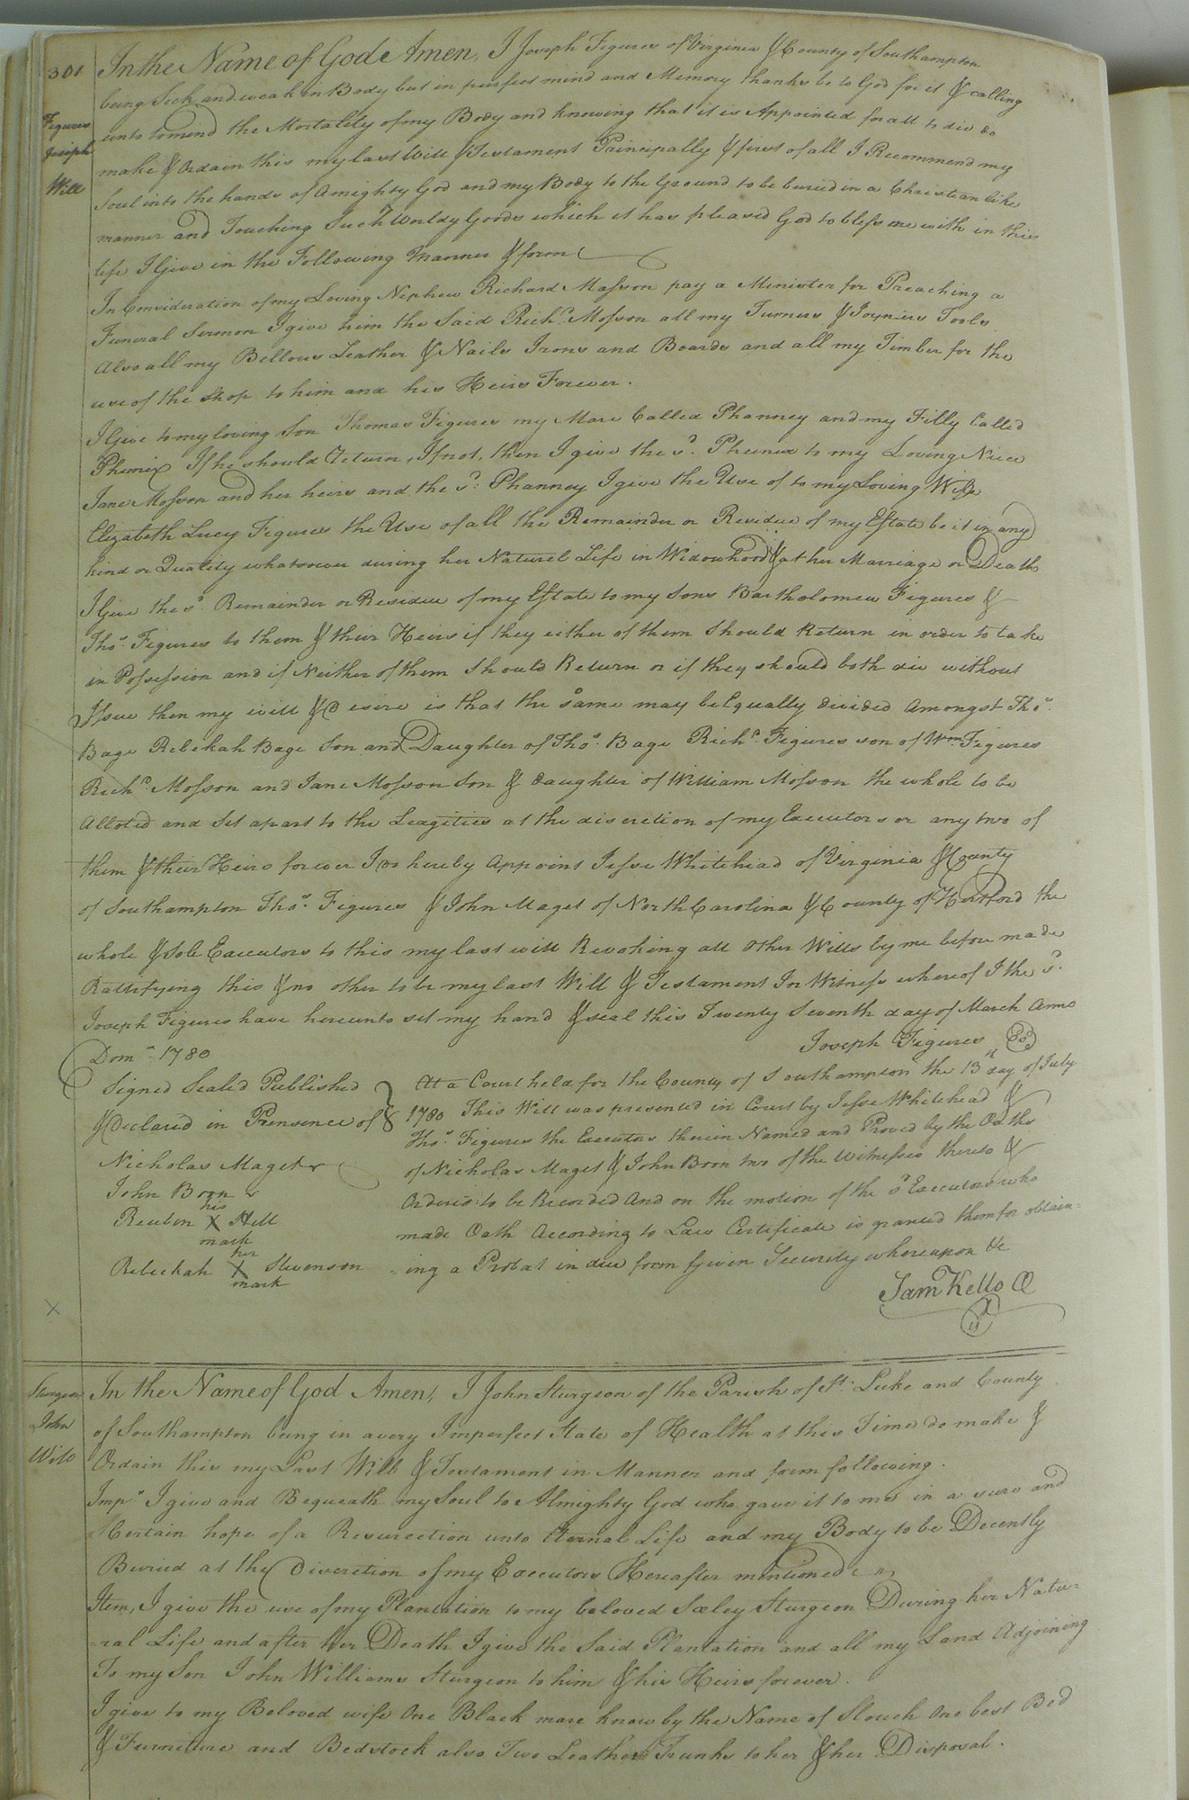 301
Figures
Joseph
Will
In the Name of God Amen, I Joseph Figures of Virginia & County of Southampton
being Sick and weak in Body but in perfect mind and Memory thanks be to God for it & calling
unto to mind the Mortality of my Body and knowing that it is Appointed for all to die do
make & Ordain this my last Will & Testament Principally & first of all I Recommend my
Soul into the hands of Almighty God and my Body to the Ground to be buried in a Christian like
manner and Touching Such Worldy Goods which it has pleased God to bless me with in this
life I Give in the Following Manner & form
In Consideration of my Loving Nephew Richard Mosson pay a Minister for Preaching a
Funeral Sermon I give him the Said Richd. Mosson all my Turners & Joyners Tools
Also all my Bellows Leather & Nails Irons and Boards and all my Timber for the
use of the Shop to him and his Heirs Forever.
I Give to my loving Son Thomas Figures my Mare Called Phanney and my Filly Called
Phenix If he should Return, If not, then I give the sd. Pheunix to my Loving Niece
Jane Mosson and her heirs and the sd. Phanney I give the Use of to my Loving Wife
Elizabeth Lucy Figures the Use of all the Remainder or Residue of my Estate be it in any
kind or Quality whatsoever during her Naturel Life in Widowhood & at her Marriage or Death
I Give the sd. Remainder or Residue of my Estate to my Sons Bartholomew Figures &
Thos. Figures to them & their Heirs if they either of them Should Return in order to take
in Possession and if Neither of them Should Return or if they should both die without
Issue then my will & Desire is that the same may be Equally divided Amongst Thos.
Bage Rebekah Bage Son and Daughter of Thos. Bage Richd. Figures son of Wm Figures
Richd. Mosson and Jane Mosson Son & Daughter of William Mosson the whole to be
Alloted and Set apart to the Leagities at the discretion of my Executors or any two of
them & their Heirs forever I do hereby Appoint Jesse Whitehead of Virginia & County
of Southampton Thos. Figures & John Maget of North Carolina & County of Hertford the
whole & Sole Executors to this my last will Revoking all Other Wills by me before made
Rattifying this & no other to be my last Will & Testament In Witness whereof I the sd.
Joseph Figures have hereunto set my hand & seal this Twenty Seventh day of March Anno
Dom. 1780
Joseph Figures
Signed Sealed Published
& Declared in Prensence of
Nicholas Maget
John Boon
his
Reuben X Hill
mark
her
Rebeckah X Stevenson
mark
At a Court held for the County of Southampton the 13th day of July
1780 This Will was presented in Court by Jesse Whitehead &
Thos. Figures the Executors therein Named and Proved by the Oaths
of Nicholas Maget & John Boon two of the Witnesses thereto &
Ordered to be Recorded And on the motion of the sd. Executors who
made Oath According to Law Certificate is granted them for obtain-
ing a Probat in due form Given Security whereupon &c
Sam Kello
X
Sturgeon
John
Will
In the Name of God Amen, I John Sturgeon of the Parish of St. Luke and County
of Southampton being in a very Imperfect State of Health at this Time do make &
Ordain this my Last Will & Testament in Manner and form following.
Imps. I give and Bequeath my Soul to Almighty God who gave it to me in a sure and
Certain hope of a Resurection unto Eternal Life and my Body to be Decently
Buried at the Discretion of my Executors Hereafter mentioned
Item, I give the use of my Plantation to my beloved Seley Sturgeon During her Natu-
ral Life and after her Death I give the Said Plantation and all my Land Adjoining
To my Son John Williams Sturgeon to him & his Heirs forever.
I give to my Beloved wife One Black mare know by the Name of Slouch One best Bed
& Furniture and Bedstock also Two Leather Trunks to her & her Disposal.